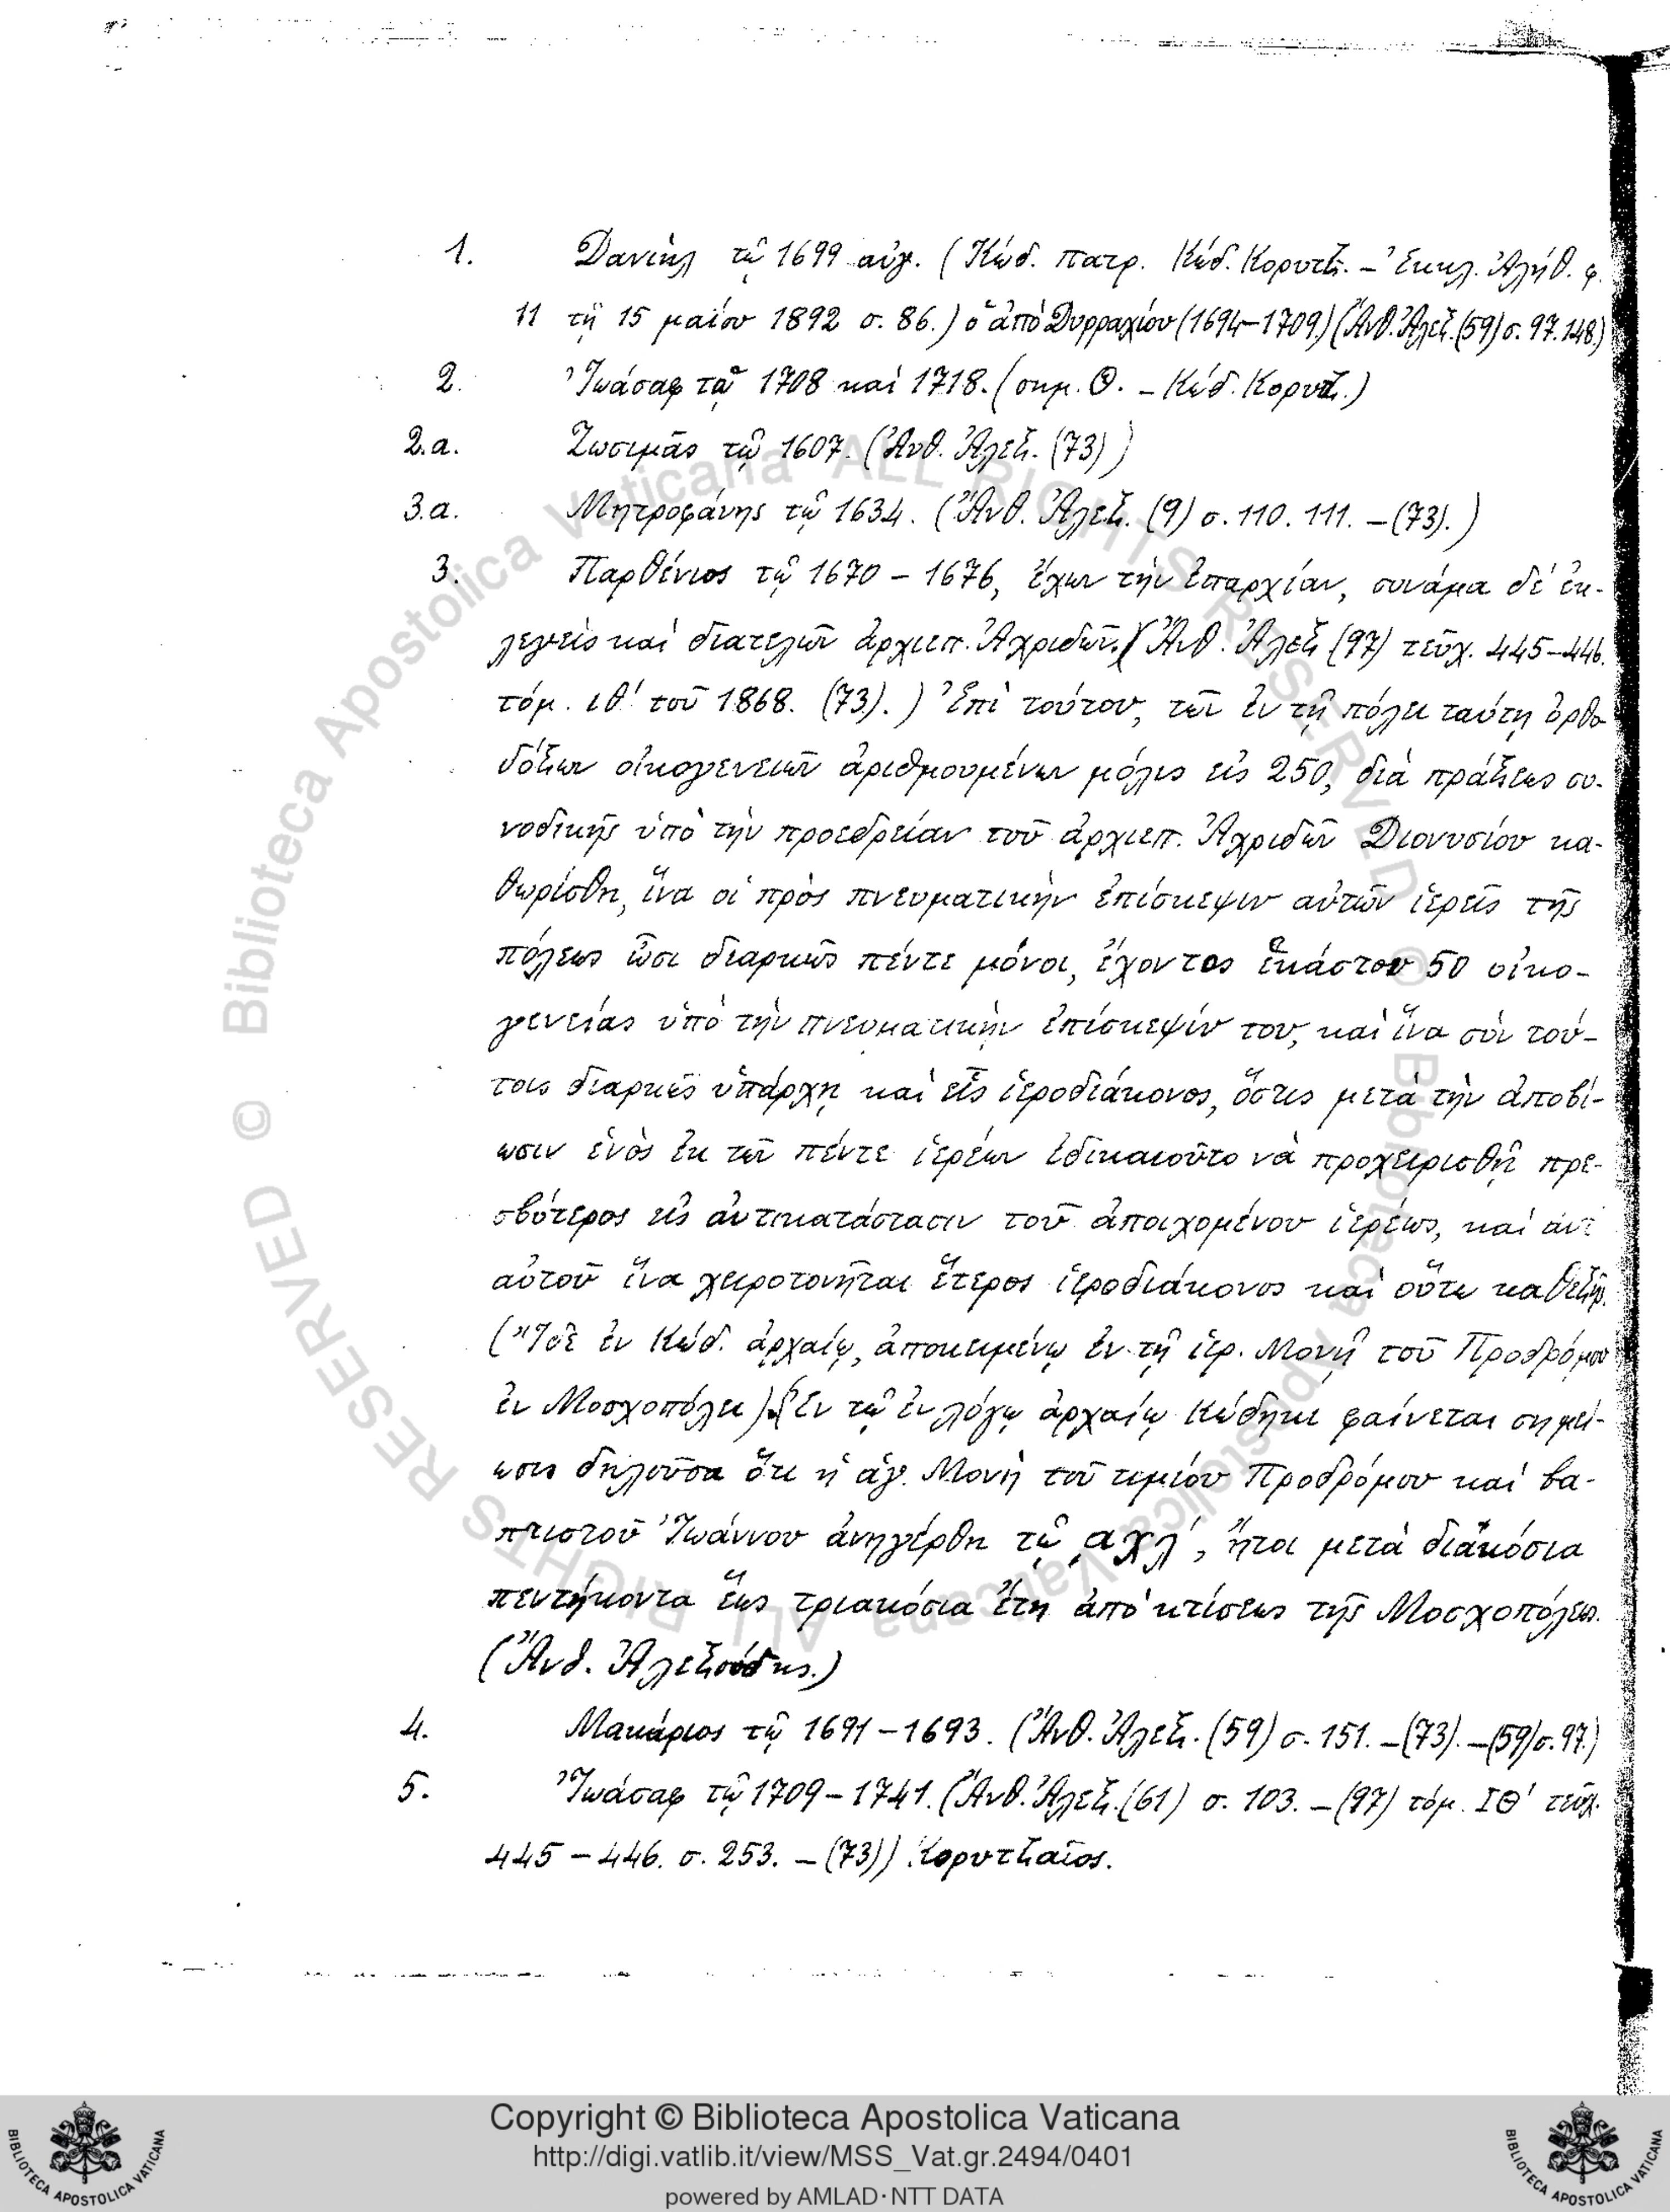 1. Δανιὴλ τῷ 1699 αὐγ. (Κώδ. πατρ. Κώδ. Κορυτζ. – Ἐκκλ. Ἀλήθ. φ.
11 τῇ 15 μαίου 1892 σ. 86.) ὁ ἀπὸ Δυρραχίου (1694–1709) (Ἄνθ. Ἀλεξ. (59) σ. 97. 148.)
2. Ἰωάσαφ τῷ 1708 καὶ 1718. (σημ. Θ. – Κώδ. Κορυτζ.)
2.α. Ζωσιμᾶς τῷ 1607. (Ἄνθ. Ἀλεξ. (73))
3.α. Μητροφάνης τῷ 1634. (Ἄνθ. Ἀλεξ. (9) σ. 110. 111. – (73).)
3. Παρθένιος τῷ 1670 – 1676, ἔχων τὴν ἐπαρχίαν, συνάμα δὲ ἐκ-
λεγεὶς καὶ διατελῶν ἀρχιεπ. Ἀχριδῶν. (Ἄνθ. Ἀλεξ (97) τεῦχ. 445–446.
τόμ. ιθ' τοῦ 1868. (73).) Ἐπὶ τούτου, τῶν ἐν τῇ πόλει ταύτῃ ὀρθο
δόξων οἰκογενειῶν ἀριθμουμένων μόλις εἰς 250, διὰ πράξεως συ-
νοδικῆς ὑπὸ τὴν προεδρείαν τοῦ ἀρχιεπ. Ἀχριδῶν Διονυσίου κα-
θωρίσθη, ἵνα οἱ πρὸς πνευματικὴν ἐπίσκεψιν αὐτῶν ἱερεῖς τῆς
πόλεως ὦσι διαρκῶς πέντε μόνοι, ἔχοντος ἑκάστου 50 οἰκο-
γενείας ὑπὸ τὴν πνευματικὴν ἐπίσκεψίν του, καὶ ἵνα σὺν τού-
τοις διαρκῶς ὑπάρχῃ καὶ εἷς ἱεροδιάκονος, ὅστις μετὰ τὴν ἀποβί-
ωσιν ἑνὸς ἐκ τῶν πέντε ἱερέων ἐδικαιοῦτο νὰ προχειρισθῇ πρε-
σβύτερος εἰς ἀντικατάστασιν τοῦ ἀποιχομένου ἱερέως, καὶ ἀντ'
αὐτοῦ ἵνα χειροτονῆται ἕτερος ἱεροδιάκονος καὶ οὕτω καθεξῆς.
(Ἴδε ἐν Κώδ. ἀρχαίῳ, ἀποκειμένῳ ἐν τῇ ἱερ. Μονῇ τοῦ Προδρόμου
ἐν Μοσχοπόλει). (Ἐν τῷ ἐν λόγῳ ἀρχαίῳ Κώδηκι φαίνεται σημεί-
ωσις δηλοῦσα ὅτι ἡ ἁγ. Μονὴ τοῦ τιμίου Προδρόμου καὶ βα-
πτιστοῦ Ἰωάννου ἀνηγέρθη τῷ ͵αχλ', ἤτοι μετὰ διακόσια
πεντήκοντα ἕως τριακόσια ἔτη ἀπὸ κτίσεως τῆς Μοσχοπόλεως.
(Ἄνθ. Ἀλεξούδης.)
4. Μακάριος τῷ 1691 – 1693. (Ἄνθ. Ἀλεξ. (59) σ. 151. – (73). – (59) σ. 97.)
5. Ἰωάσαφ τῷ 1709 – 1741. (Ἄνθ. Ἀλεξ. (61) σ. 103. – (97) τόμ. ΙΘ' τεῦχ.
445 – 446. σ. 253. – (73)) Κορυτζαῖος.
© Biblioteca Apostolica Vaticana ALL RIGHTS RESERVED
Copyright © Biblioteca Apostolica Vaticana
http://digi.vatlib.it/view/MSS_Vat.gr.2494/0401
powered by AMLAD·NTT DATA
BIBLIOTECA APOSTOLICA VATICANA
BIBLIOTECA APOSTOLICA VATICANA